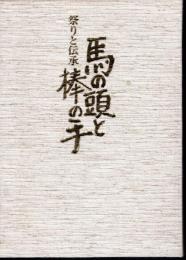 祭りと伝承
馬の頭と
棒の手